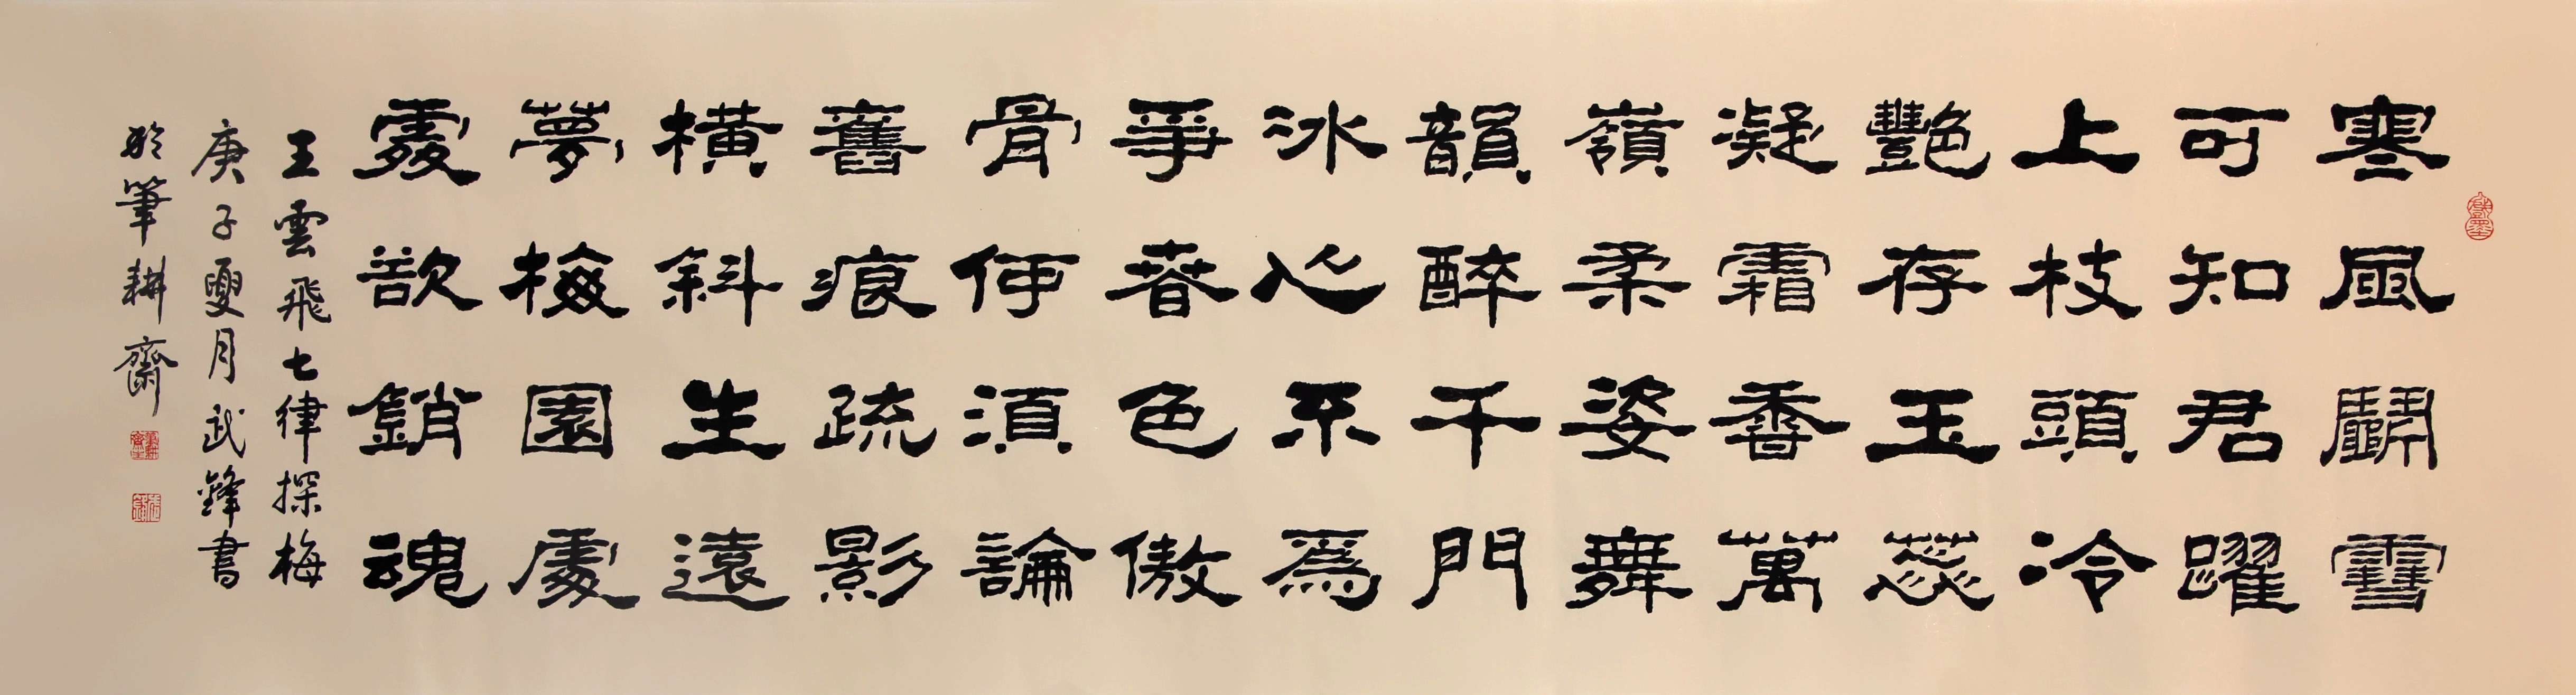 寒風鬭雪
可知君躍
上枝頭冷
艷存玉蕊
凝霜香萬
嶺柔姿舞
韻醉千門
冰心不爲
爭春色傲
骨何須論
舊痕疏影
橫斜生遠
夢梅園處
處欲銷魂
王雲飛七律探梅
庚子夏月武鋒書
於筆耕齋